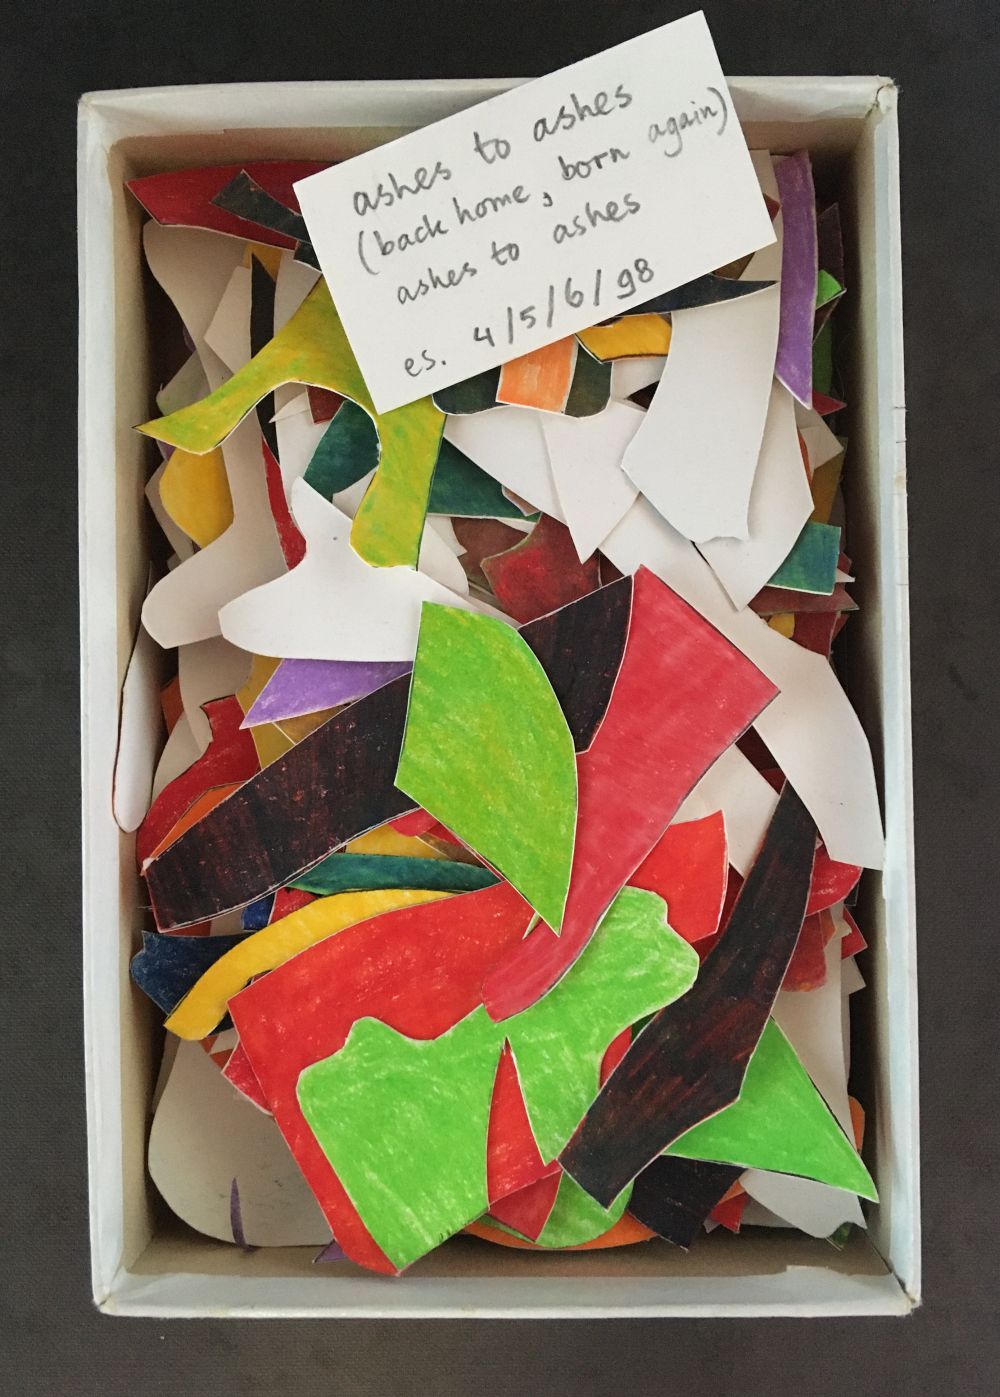 ashes to ashes
(back home, born again)
ashes to ashes
es. 4/5/6/98